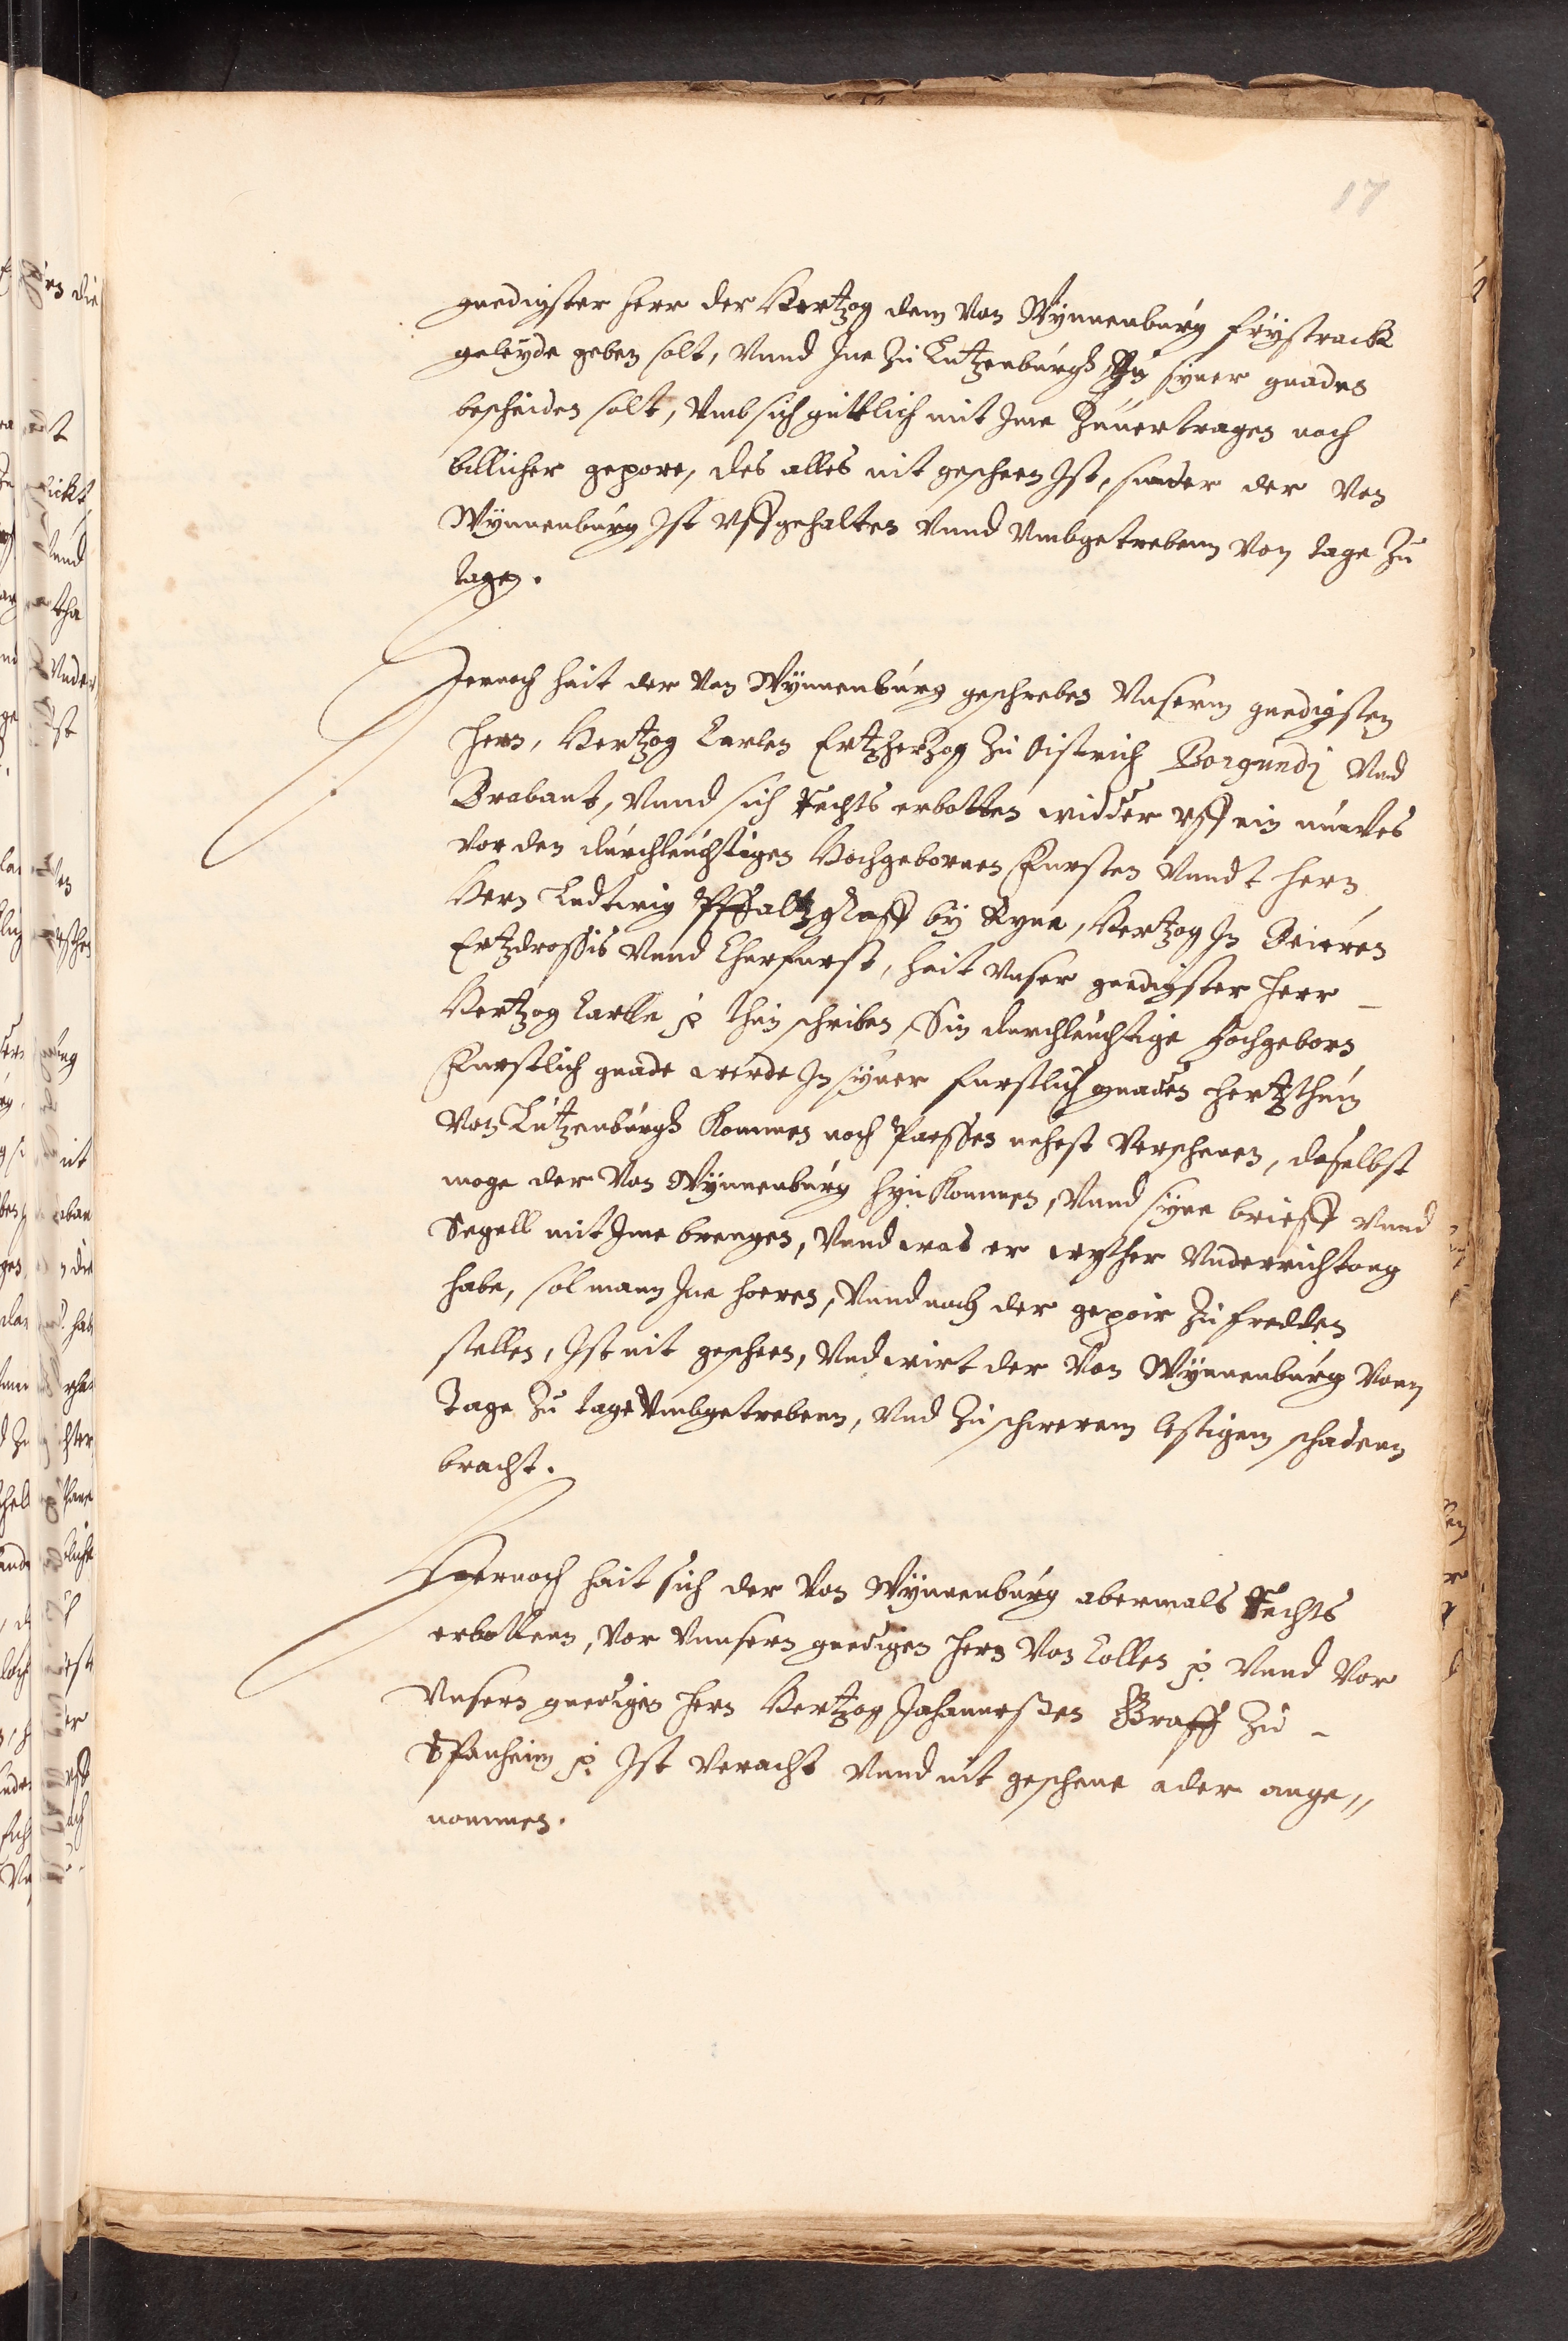 17
gnedigster Herr der Hertzog dem von Wÿnnenburg frÿstrack
geleÿde geben solt, vnnd Jne zu Lutzenburgh syner gnaden
bescheiden solt, vmb sich guttlich mit Jme Zuuertragen noch
billicher gepore, des alles nit gescheen Ist, sunder der von
Wÿnnenburg Ist vffgehalten vnnd vmbgetrebenn von tage zu
tagen.
Hernoch hait der von Wÿnnenburg geschreben vnserm gnedigsten
Hern, Hertzog Carlen Ertzhertzog zu Oistrich Borgundj vnd
Brabant, vnnd sich Rechts erbotten widder vff ein nuwes
vor den durchleuchtigen Hochgebornen Fursten vnndt Hern
Hern Ludwig Pffaltzgraff bÿ Ryne, Hertzog In Beieren
Ertzdrossis vnnd Churfurst, hait vnser gnedigster Herr
Hertzog Carlle p thun schriben, Sin durchleuchtige hochgeborn
Furstlich gnade werde In syner furstlich gnaden Hertzthum
von Lutzenburgh kommen noch Paesschen nehest verschenen, daselbst
moge der von Wÿnnenburg hyn kommen, vnnd syne brieff vnnd
Segell mit Jme brengen, vnnd was er wyther vnderrichtong
habe, sol mann Jne hoeren, vnnd noch der gepoir zu fredden
stellen, Ist nit gescheen, vnd wirt der von Wÿnnenburg vonn
Tage zu tage vmbgetrebenn, vnd zu schwerem lestigem schadenn
bracht.
Hernoch hait sich der von Wÿnnenburg abermals Rechts
erbottenn, vor vnnsern gnedigen Hern von Collen p. vnnd vor
vnsern gnedigen Hern Hertzog Johanneßen Graff zu
Spanheim p. Ist veracht vnnd nit geschene ader ange„
nommen.